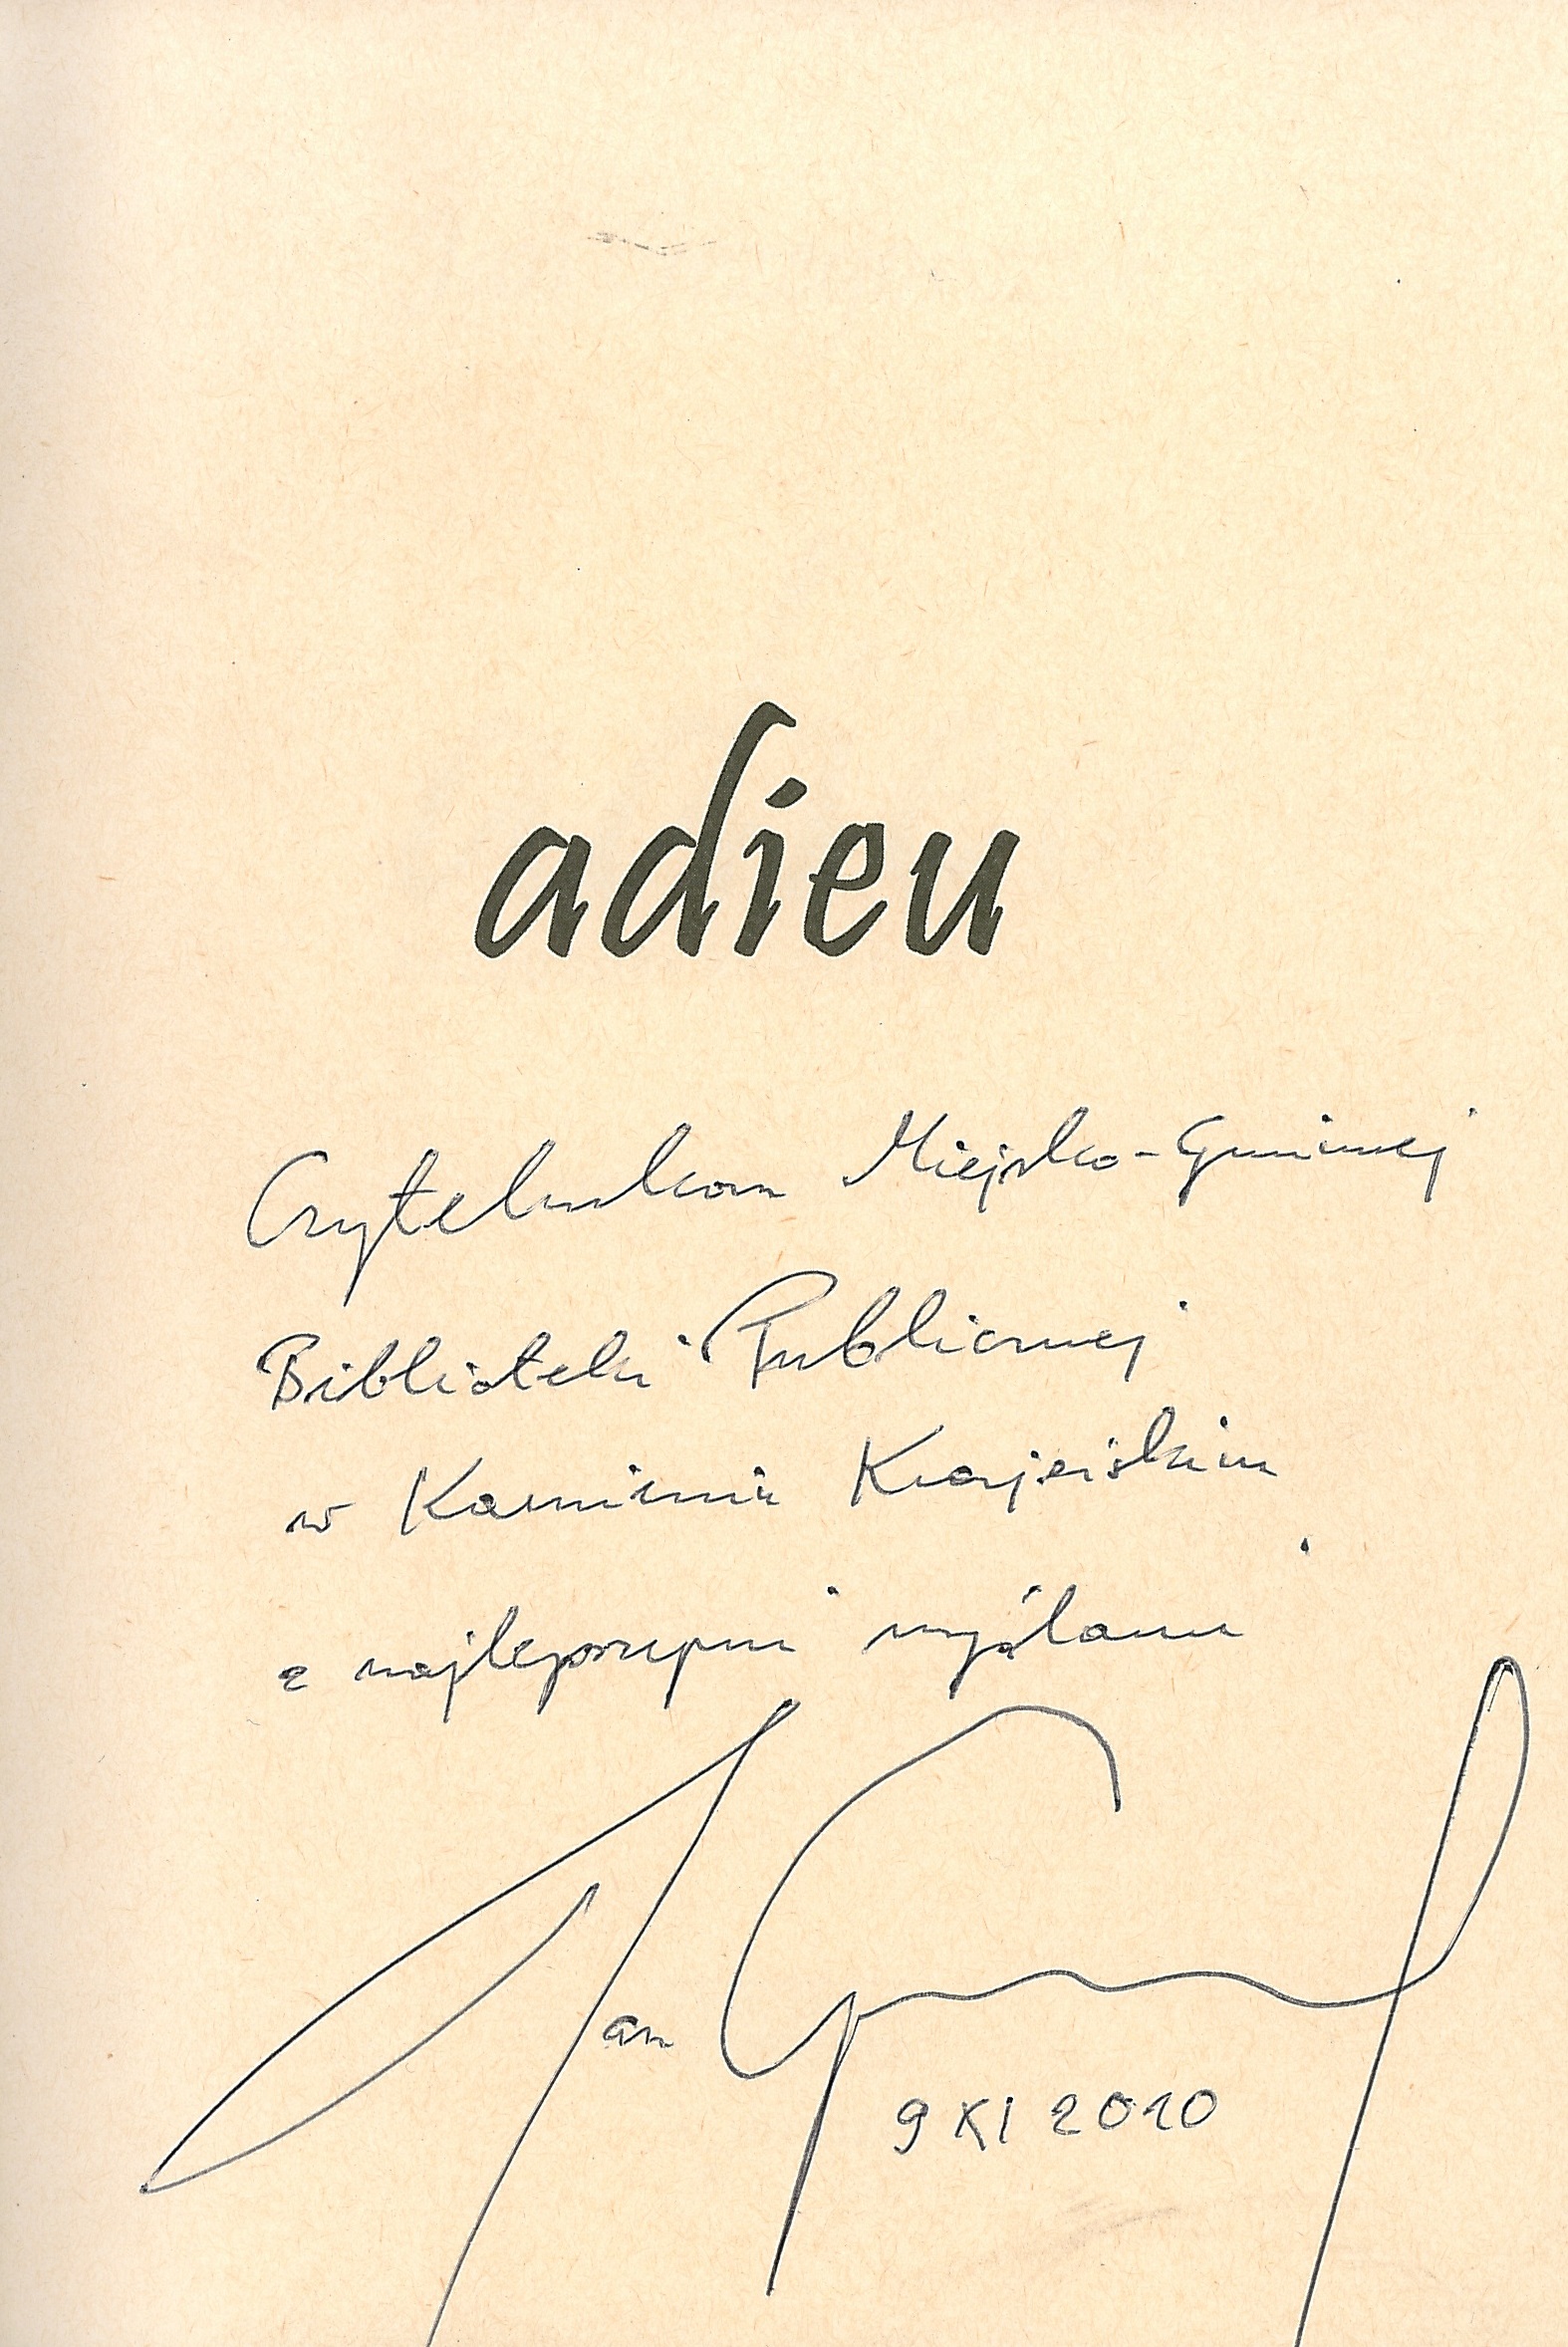 adieu
Czytelnikom Miejsko-Gminnej
Biblioteki Publicznej
w Kamieniu Krajeńskim
z najlepszymi myślami
Jan
9 XI 2010